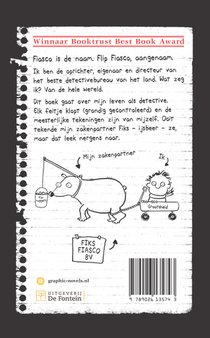 Winnaar Booktrust Best Book Award
Fiasco is de naam. Flip Fiasco, aangenaam.
Ik ben de oprichter, eigenaar en directeur van
het beste detectivebureau van het land. Wat zeg
ik? Van de hele wereld.
Dit boek gaat over mijn leven als detective.
Elk feitje klopt (grondig gecontroleerd) en de
meesterlijke tekeningen zijn van mijzelf. Ooit
tekende mijn zakenpartner Fiks - ijsbeer - ze,
maar dat leek nergens naar.
Mijn zakenpartner
Ik
Grootheid
FIKS
FIASCO
BV
graphic-novels.nl
UITGEVERIJ
De Fontein
9 789026 135743